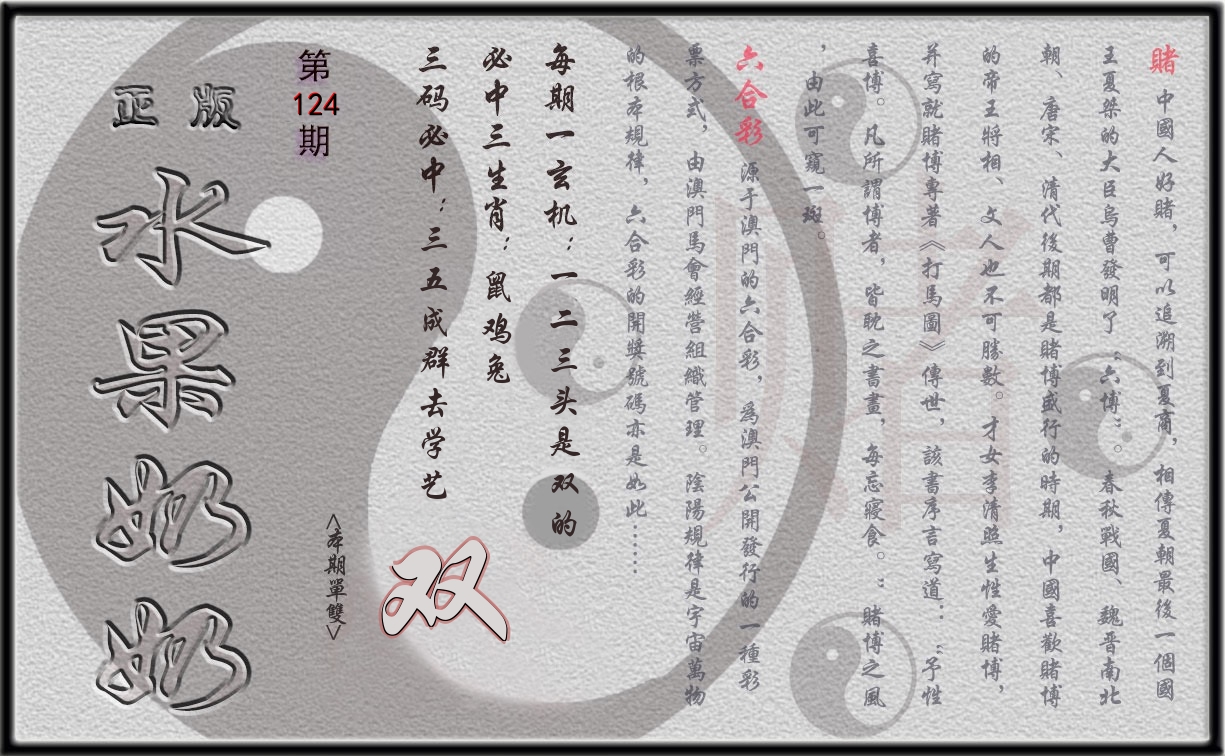 賭 中國人好賭，可以追溯到夏商，相傳夏朝最後一個國
王夏桀的大臣烏曹發明了“六博”。春秋戰國、魏晋南北
朝、唐宋、清代後期都是賭博盛行的時期，中國喜歡賭博
的帝王將相、文人也不可勝數。才女李清照生性愛賭博，
并寫就賭博專著《打馬圖》傳世，該書序言寫道：“予性
喜博。凡所謂博者，皆耽之書畫，每忘寢食。：賭博之風
，由此可窺一斑。
六合彩 源于澳門的六合彩，爲澳門公開發行的一種彩
票方式，由澳門馬會經營組織管理。陰陽規律是宇宙萬物
的根本規律，六合彩的開獎號碼亦是如此……
每期一玄机：一二三头是双的
必中三生肖：鼠鸡兔
三码必中：三五成群去学艺
双
<本期單雙>
第
124
期
正版
水果奶奶
賭